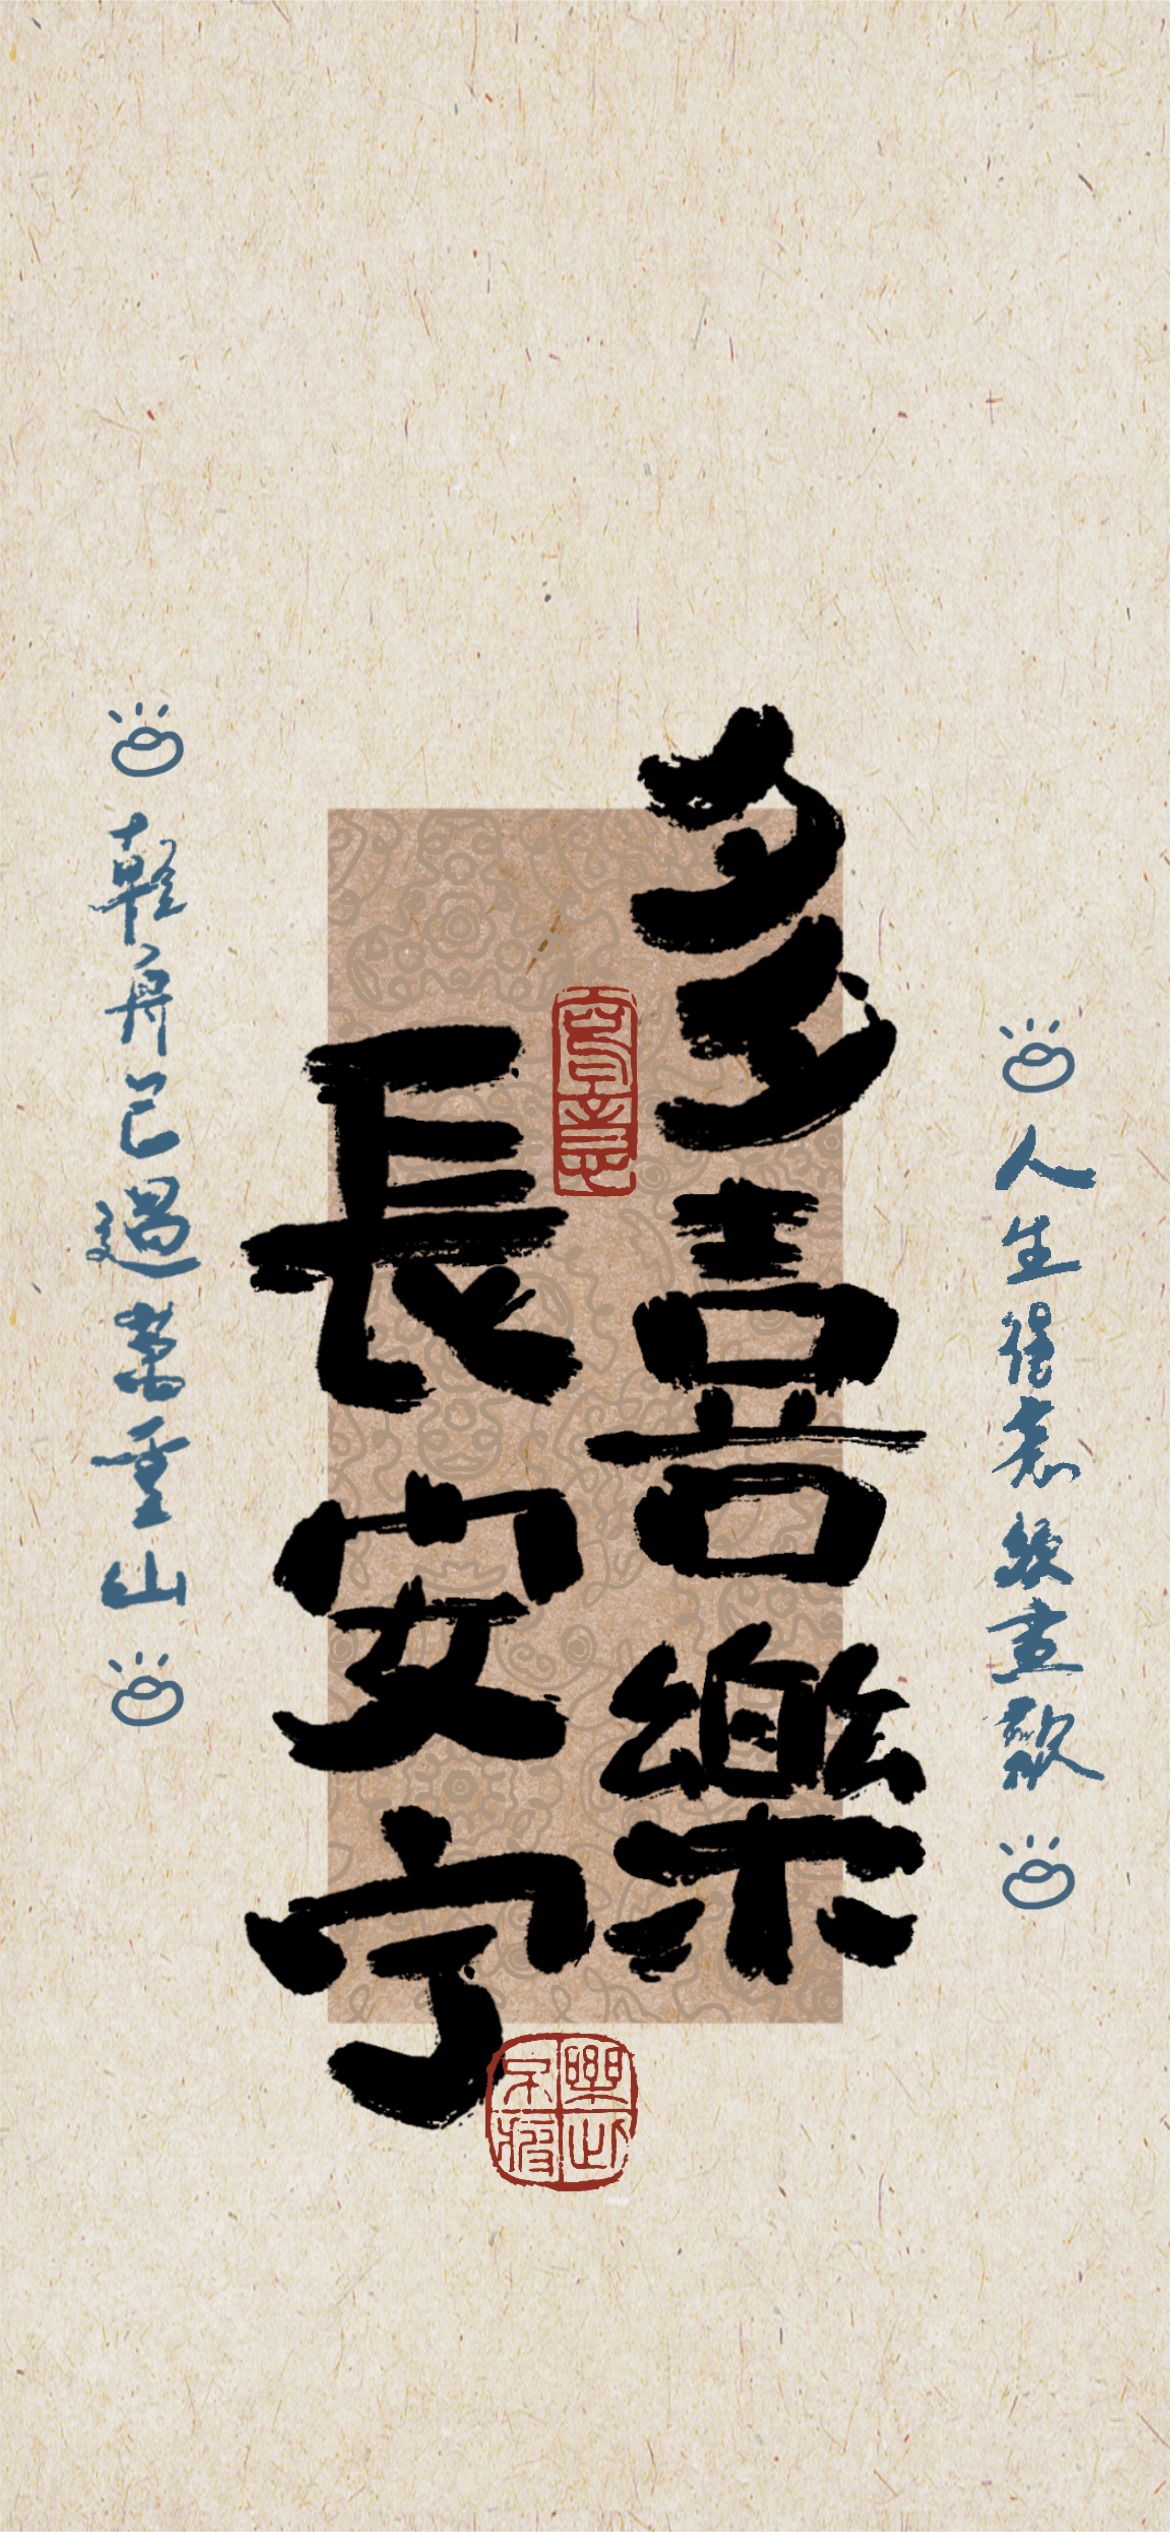 人生得意須盡歡
多喜樂
長安宁
輕舟已過萬重山
樂此不疲